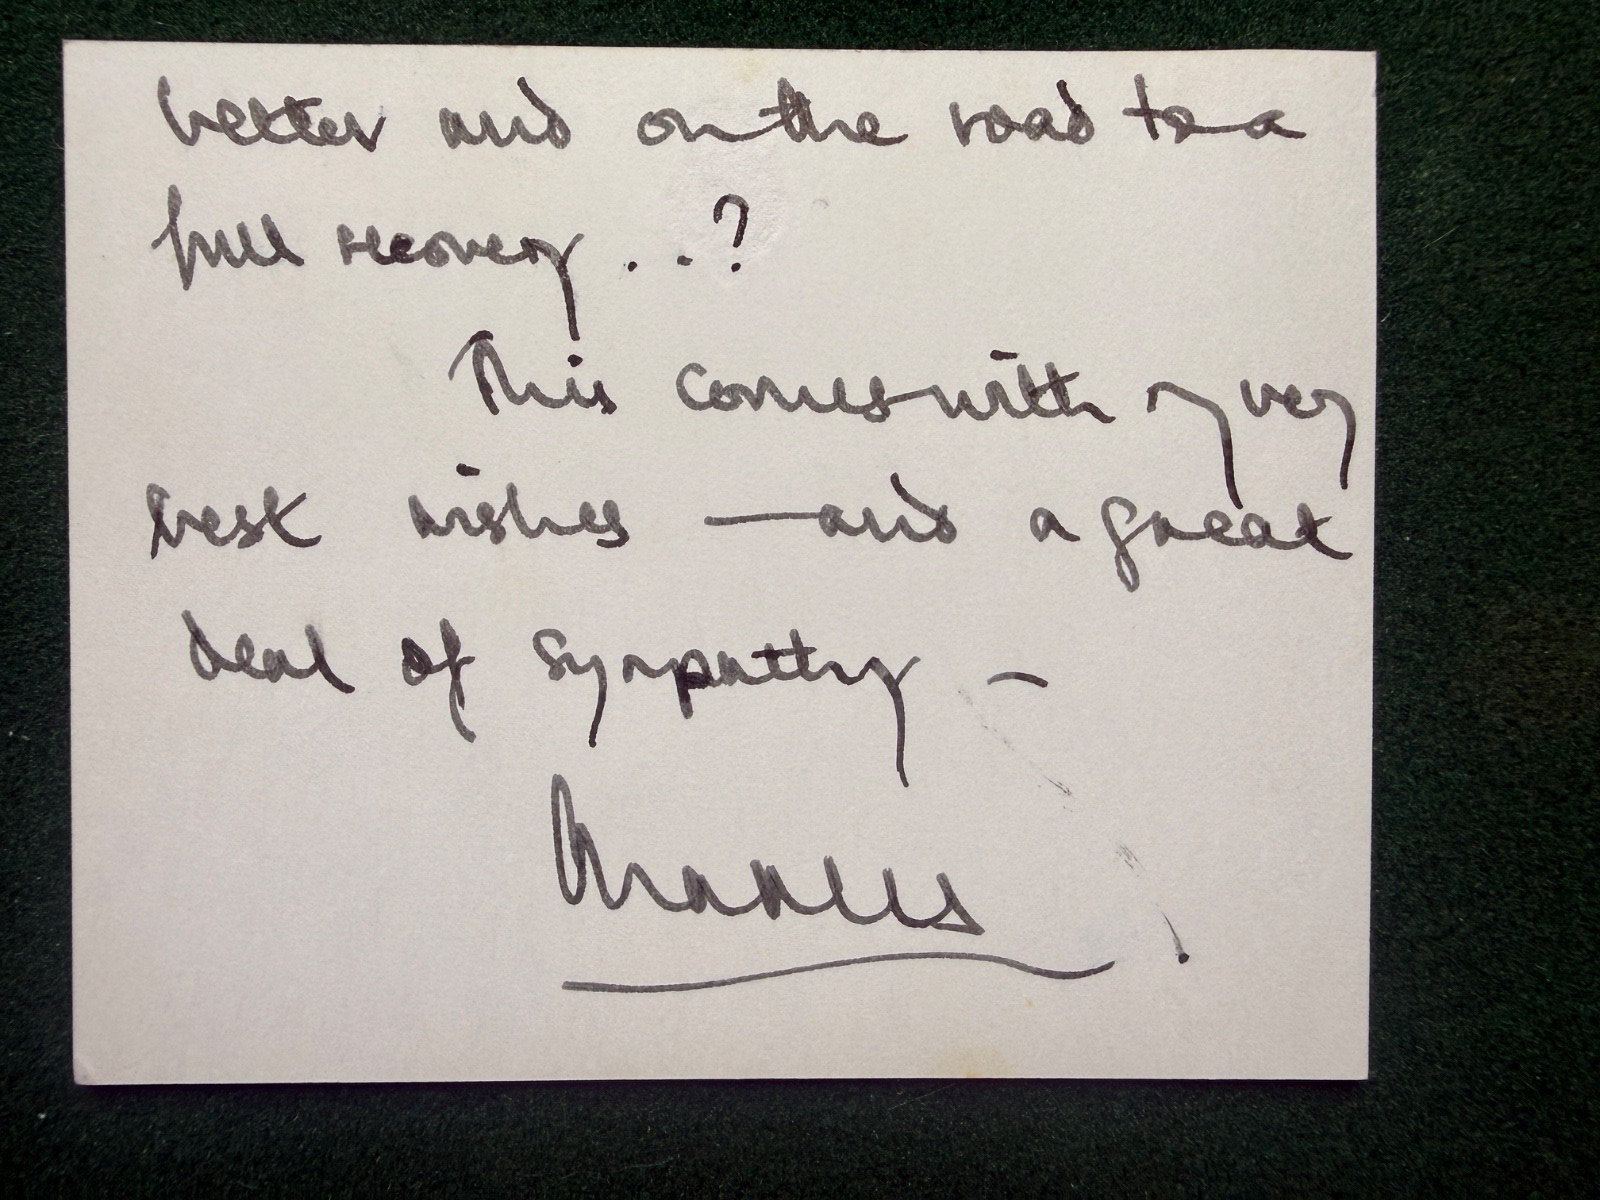 better and on the road to a
full recovery . . ?
This comes with my very
best wishes — and a great
deal of sympathy —
Charles